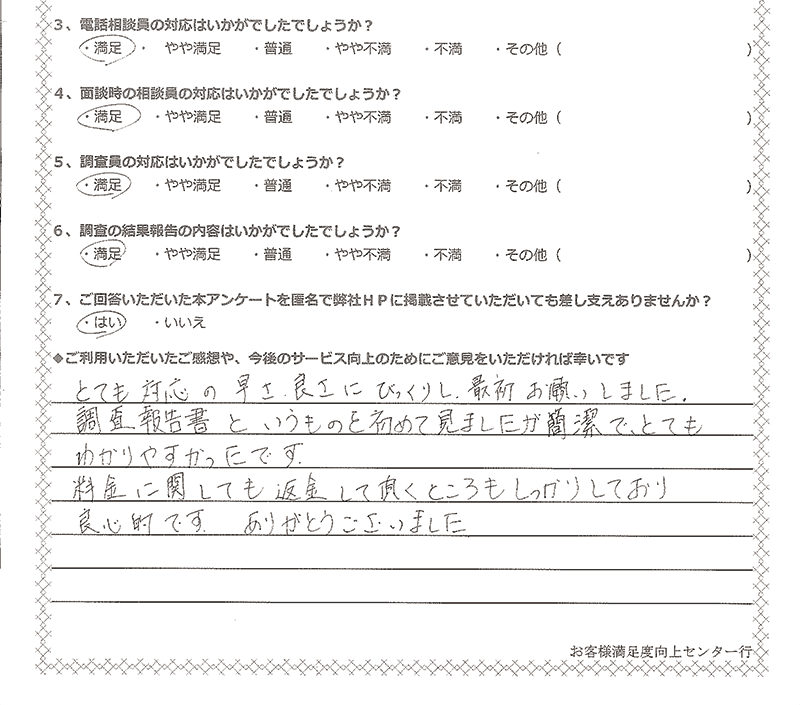 3、電話相談員の対応はいかがでしたでしょうか？
・満足・ やや満足 ・普通 ・やや不満 ・不満 ・その他（ ）
4、面談時の相談員の対応はいかがでしたでしょうか？
・満足 ・やや満足 ・普通 ・やや不満 ・不満 ・その他（ ）
5、調査員の対応はいかがでしたでしょうか？
・満足 ・やや満足 ・普通 ・やや不満 ・不満 ・その他（ ）
6、調査の結果報告の内容はいかがでしたでしょうか？
・満足 ・やや満足 ・普通 ・やや不満 ・不満 ・その他（ ）
7、ご回答いただいた本アンケートを匿名で弊社ＨＰに掲載させていただいても差し支えありませんか？
・はい ・いいえ
◆ご利用いただいたご感想や、今後のサービス向上のためにご意見をいただければ幸いです
とても対応の早さ、良さにびっくりし、最初お願いしました。
調査報告書というものを初めて見ましたが簡潔で、とても
わかりやすかったです。
料金に関しても返金して頂くところもしっかりしており
良心的です。ありがとうございました
お客様満足度向上センター行